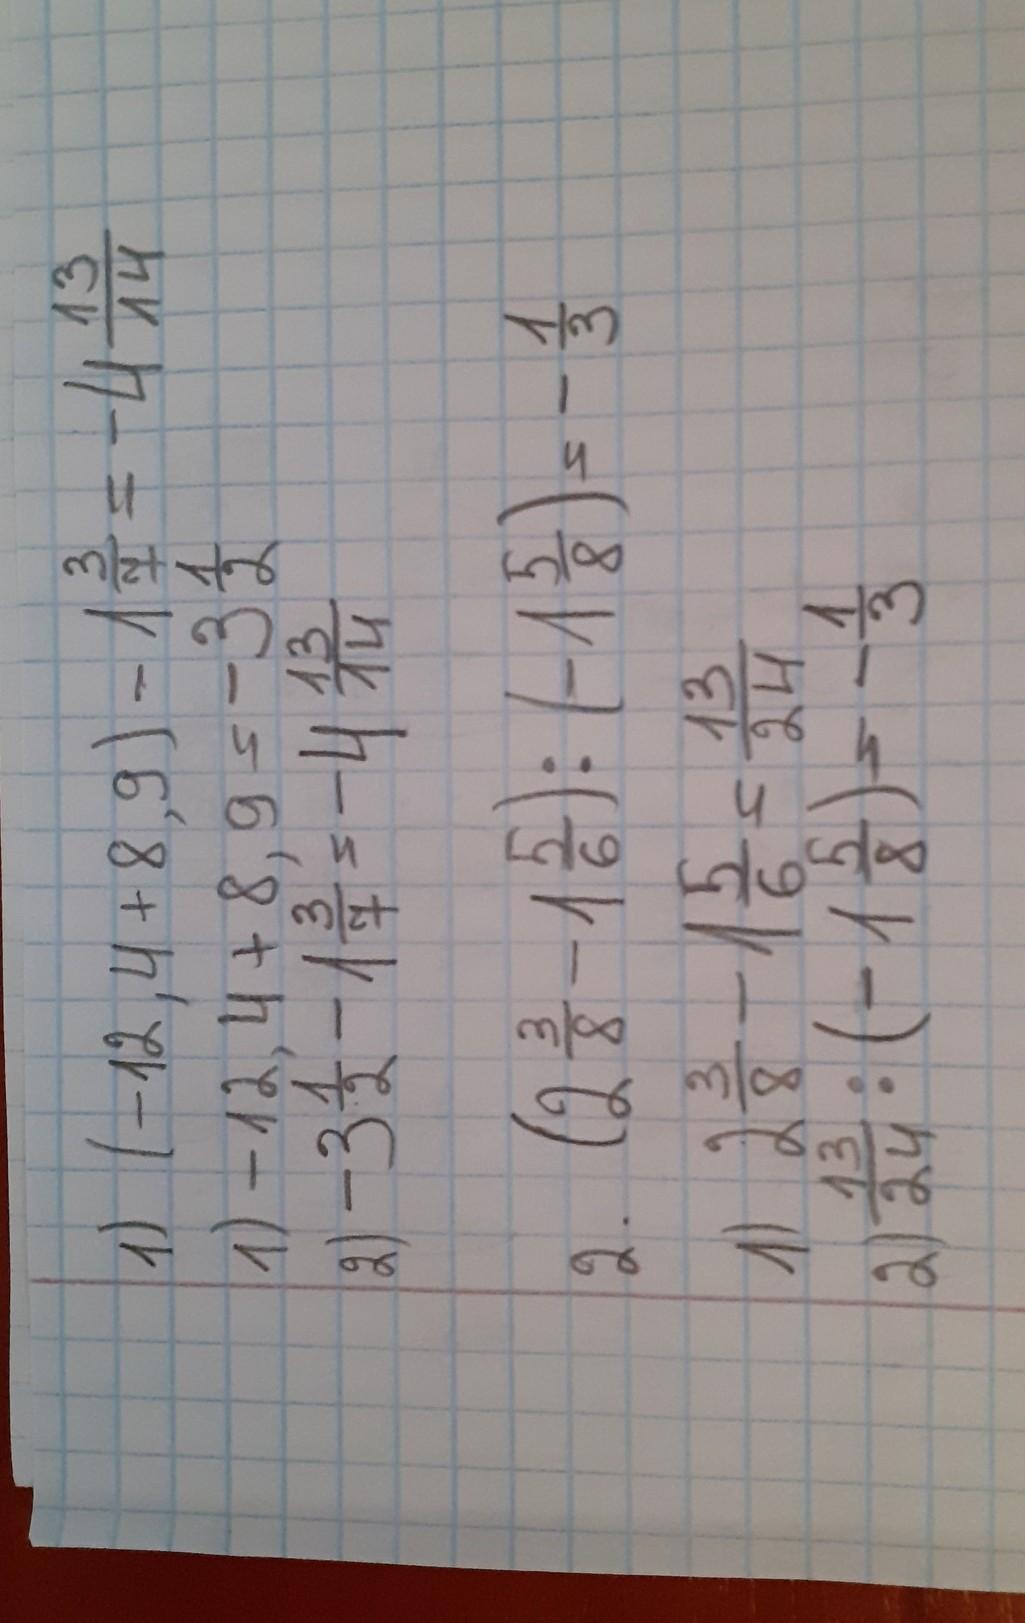 1) (-12,4+8,9)-1 3/7 = -4 13/14
1) -12,4+8,9= -3 1/2
2) -3 1/2 - 1 3/7 = -4 13/14
2. (2 3/8 - 1 5/6) : (-1 5/8) = - 1/3
1) 2 3/8 - 1 5/6 = 13/24
2) 13/24 : (-1 5/8) = - 1/3